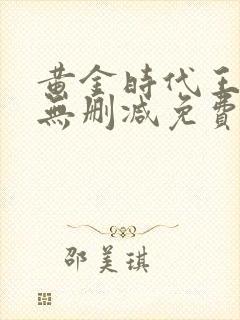 黄金時代王
無删减免費
邵美琪